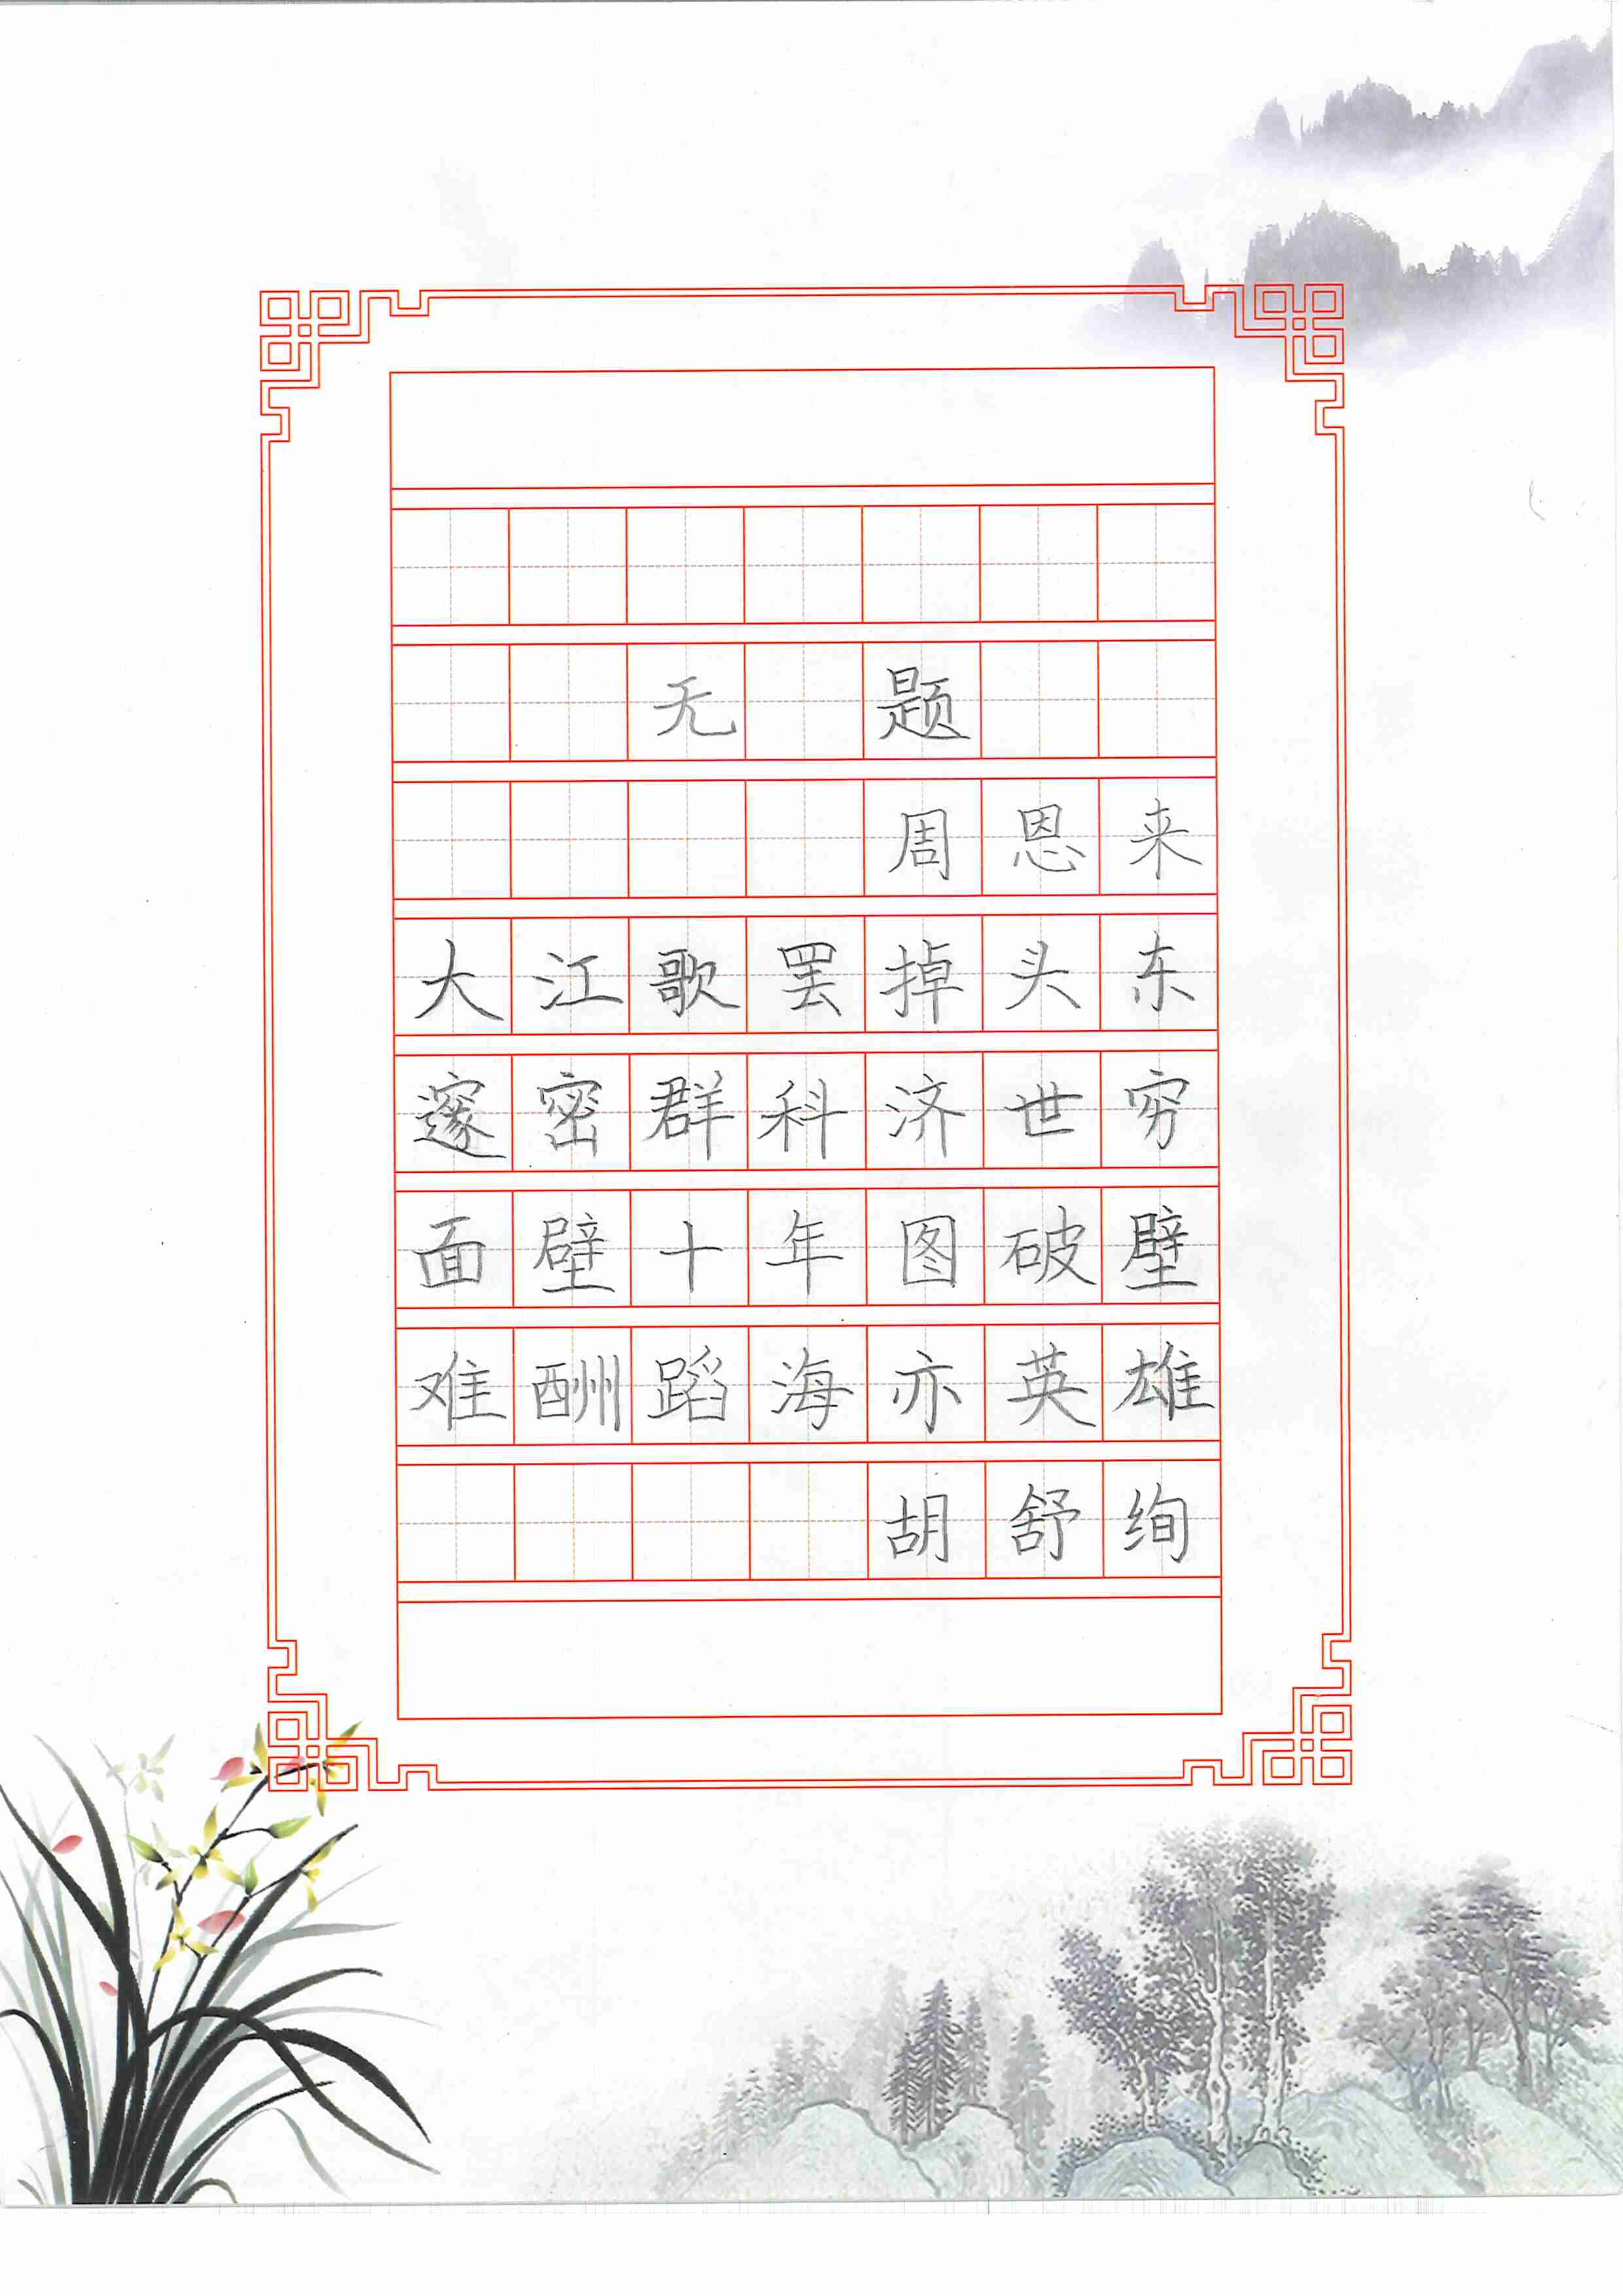 无题
周恩来
大江歌罢掉头东
邃密群科济世穷
面壁十年图破壁
难酬蹈海亦英雄
胡舒绚